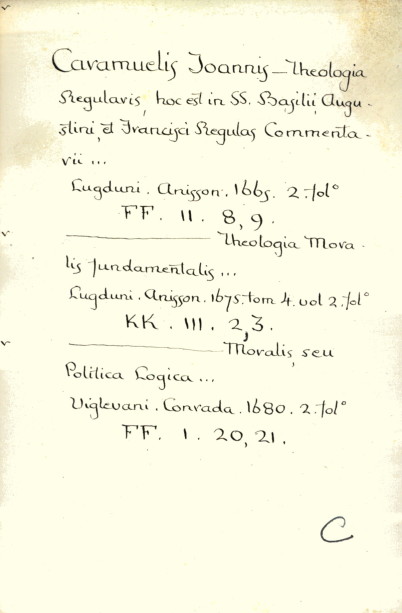 Caramuelis Joannis — Theologia
Regularis, hoc est in SS. Basilii, Augu-
stini, et Francisci Regulas Commenta-
rii ...
Lugduni. Anisson. 1665. 2. fol°
FF. II. 8, 9.
— Theologia Mora-
lis fundamentalis ...
Lugduni. Anisson. 1675. tom 4. vol 2. fol°
KK. III. 2, 3.
— Moralis, seu
Politica Logica ...
Viglevani. Conrada. 1680. 2. fol°
FF. I. 20, 21.
C